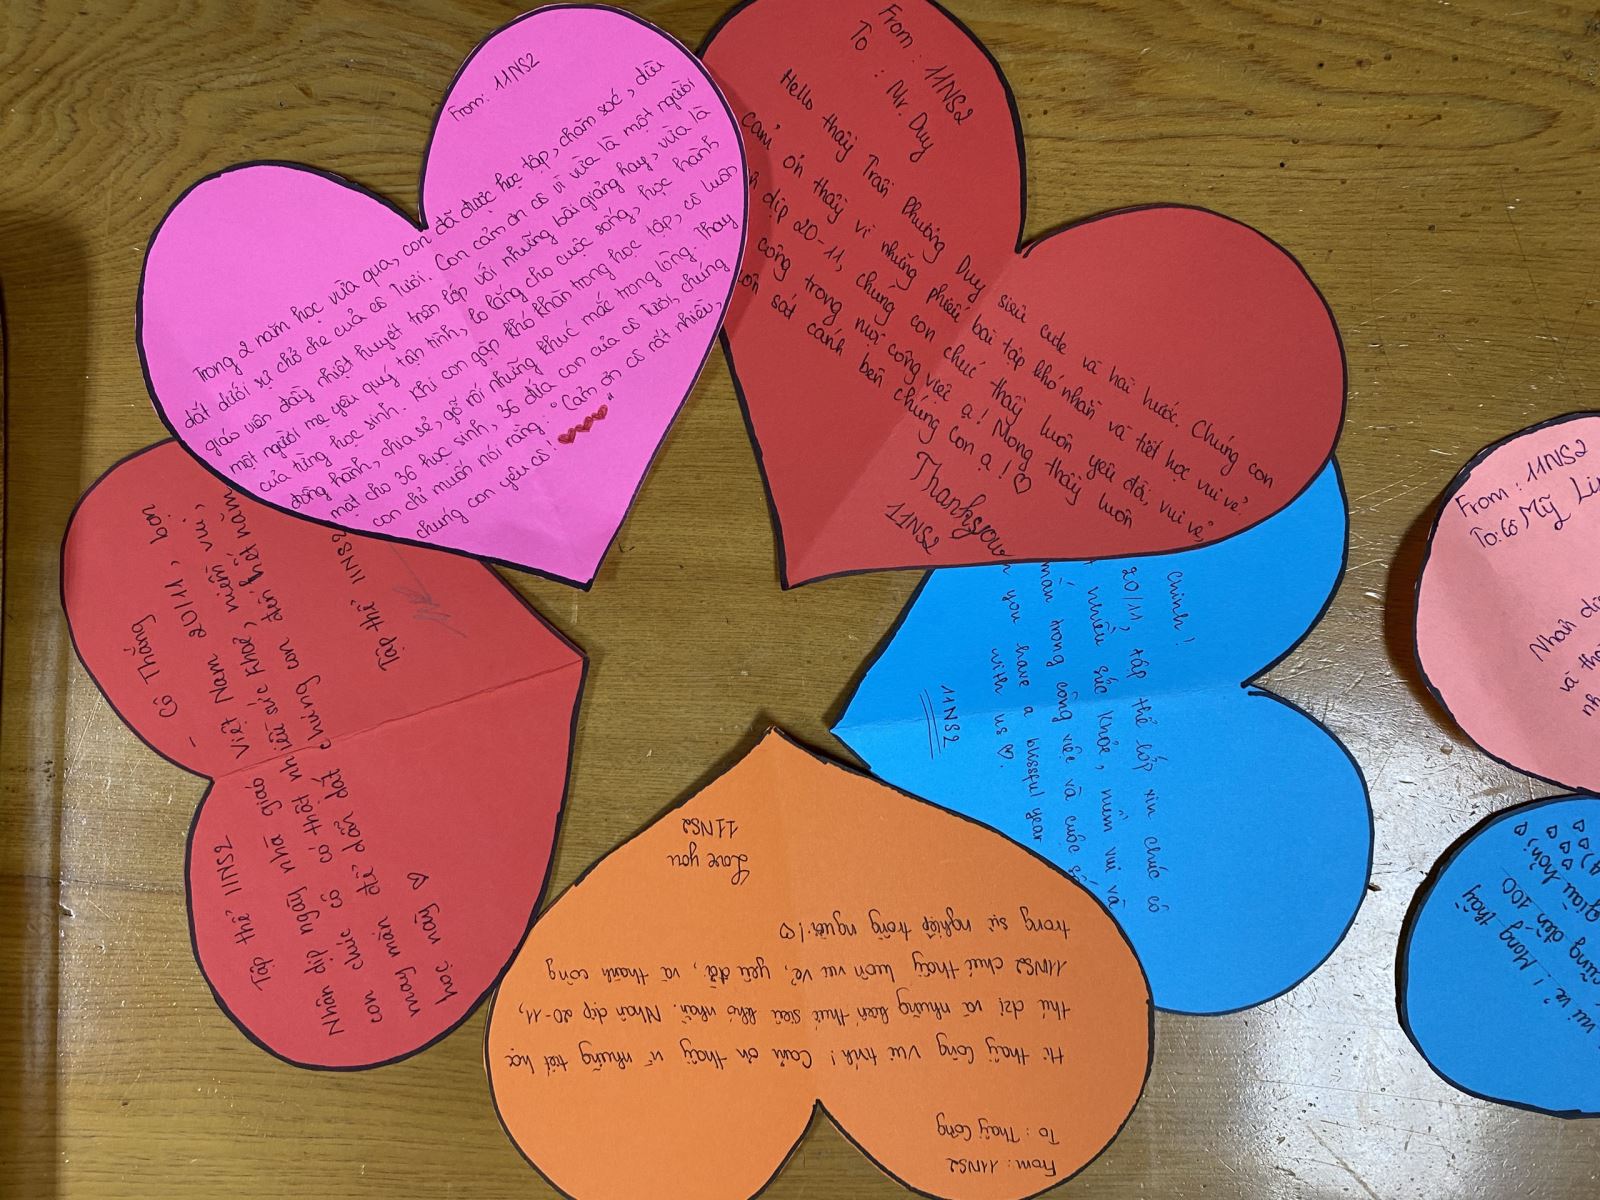 From: 11NS2
Trong 2 năm học vừa qua, con đã được học tập, chăm sóc, dìu
dắt dưới sự chở che của cô Tươi. Con cảm ơn cô vì vừa là một người
giáo viên đầy nhiệt huyết trên lớp với những bài giảng hay, vừa là
một người mẹ yêu quý tận tình, lo lắng cho cuộc sống, học hành
của từng học sinh. Khi con gặp khó khăn trong học tập, cô luôn
đồng hành, chia sẻ, gỡ rối những khúc mắc trong lòng. Thay
mặt cho 36 học sinh, 36 đứa con của cô Tươi, chúng
con chỉ muốn nói rằng: "Cảm ơn cô rất nhiều,
chúng con yêu cô!"
From: 11NS2
To: Mr. Duy
Hello thầy Trần Phương Duy siêu cute và hài hước. Chúng con
cảm ơn thầy vì những phiếu bài tập khó nhằn và tiết học vui vẻ.
dịp 20-11, chúng con chúc thầy luôn yêu đời, vui vẻ
công trong mọi công việc ạ! Mong thầy luôn
sát cánh bên chúng con ạ! ♡
Thankyou
11NS2
Tập thể 11NS2 - Cô Thắng
Nhân dịp ngày nhà giáo Việt Nam 20/11, bọn
con chúc cô có thật nhiều sức khoẻ, niềm vui,
may mắn để dẫn dắt chúng con đến hết năm
học này ♡
Tập thể 11NS2
Chinh!
20/11, tập thể lớp xin chúc cô
nhiều sức khỏe, niềm vui và
mắn trong công việc và cuộc
you have a blissful year
with us ♡.
11NS2
From: 11NS2
To: Thầy Công
Hi thầy Công vui tính! Cảm ơn thầy vì những tiết học
thú dzị và những kiến thức siêu khó nhằn. Nhân dịp 20-11,
11NS2 chúc thầy luôn vui vẻ, yêu đời, và thành công
trong sự nghiệp trồng người! ♡
Love you
11NS2
From: 11NS2
To: cô Mỹ
Nhân
và
vui vẻ! Mong thầy
cũng đến 100